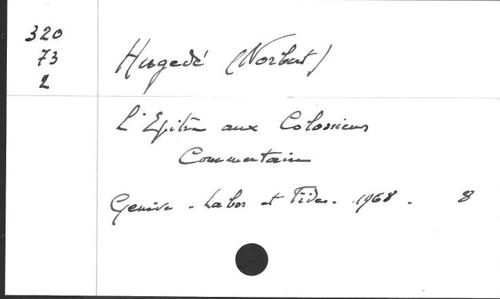 320
73
2
Hugedé (Norbert)
L'Epître aux Colossiens
Commentaire
Genève - Labor et Fides - 1968 - 8